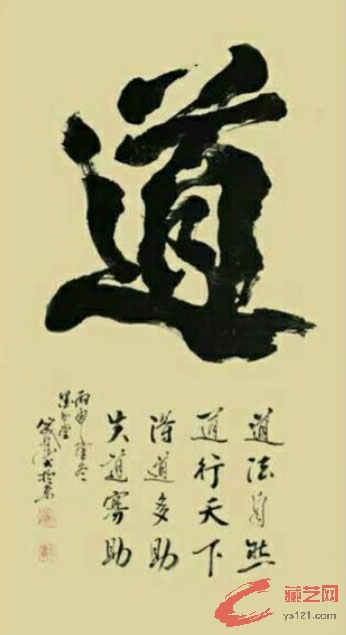 道
道法自然
道行天下
得道多助
失道寡助
丙申
藏艺网
ys121.com